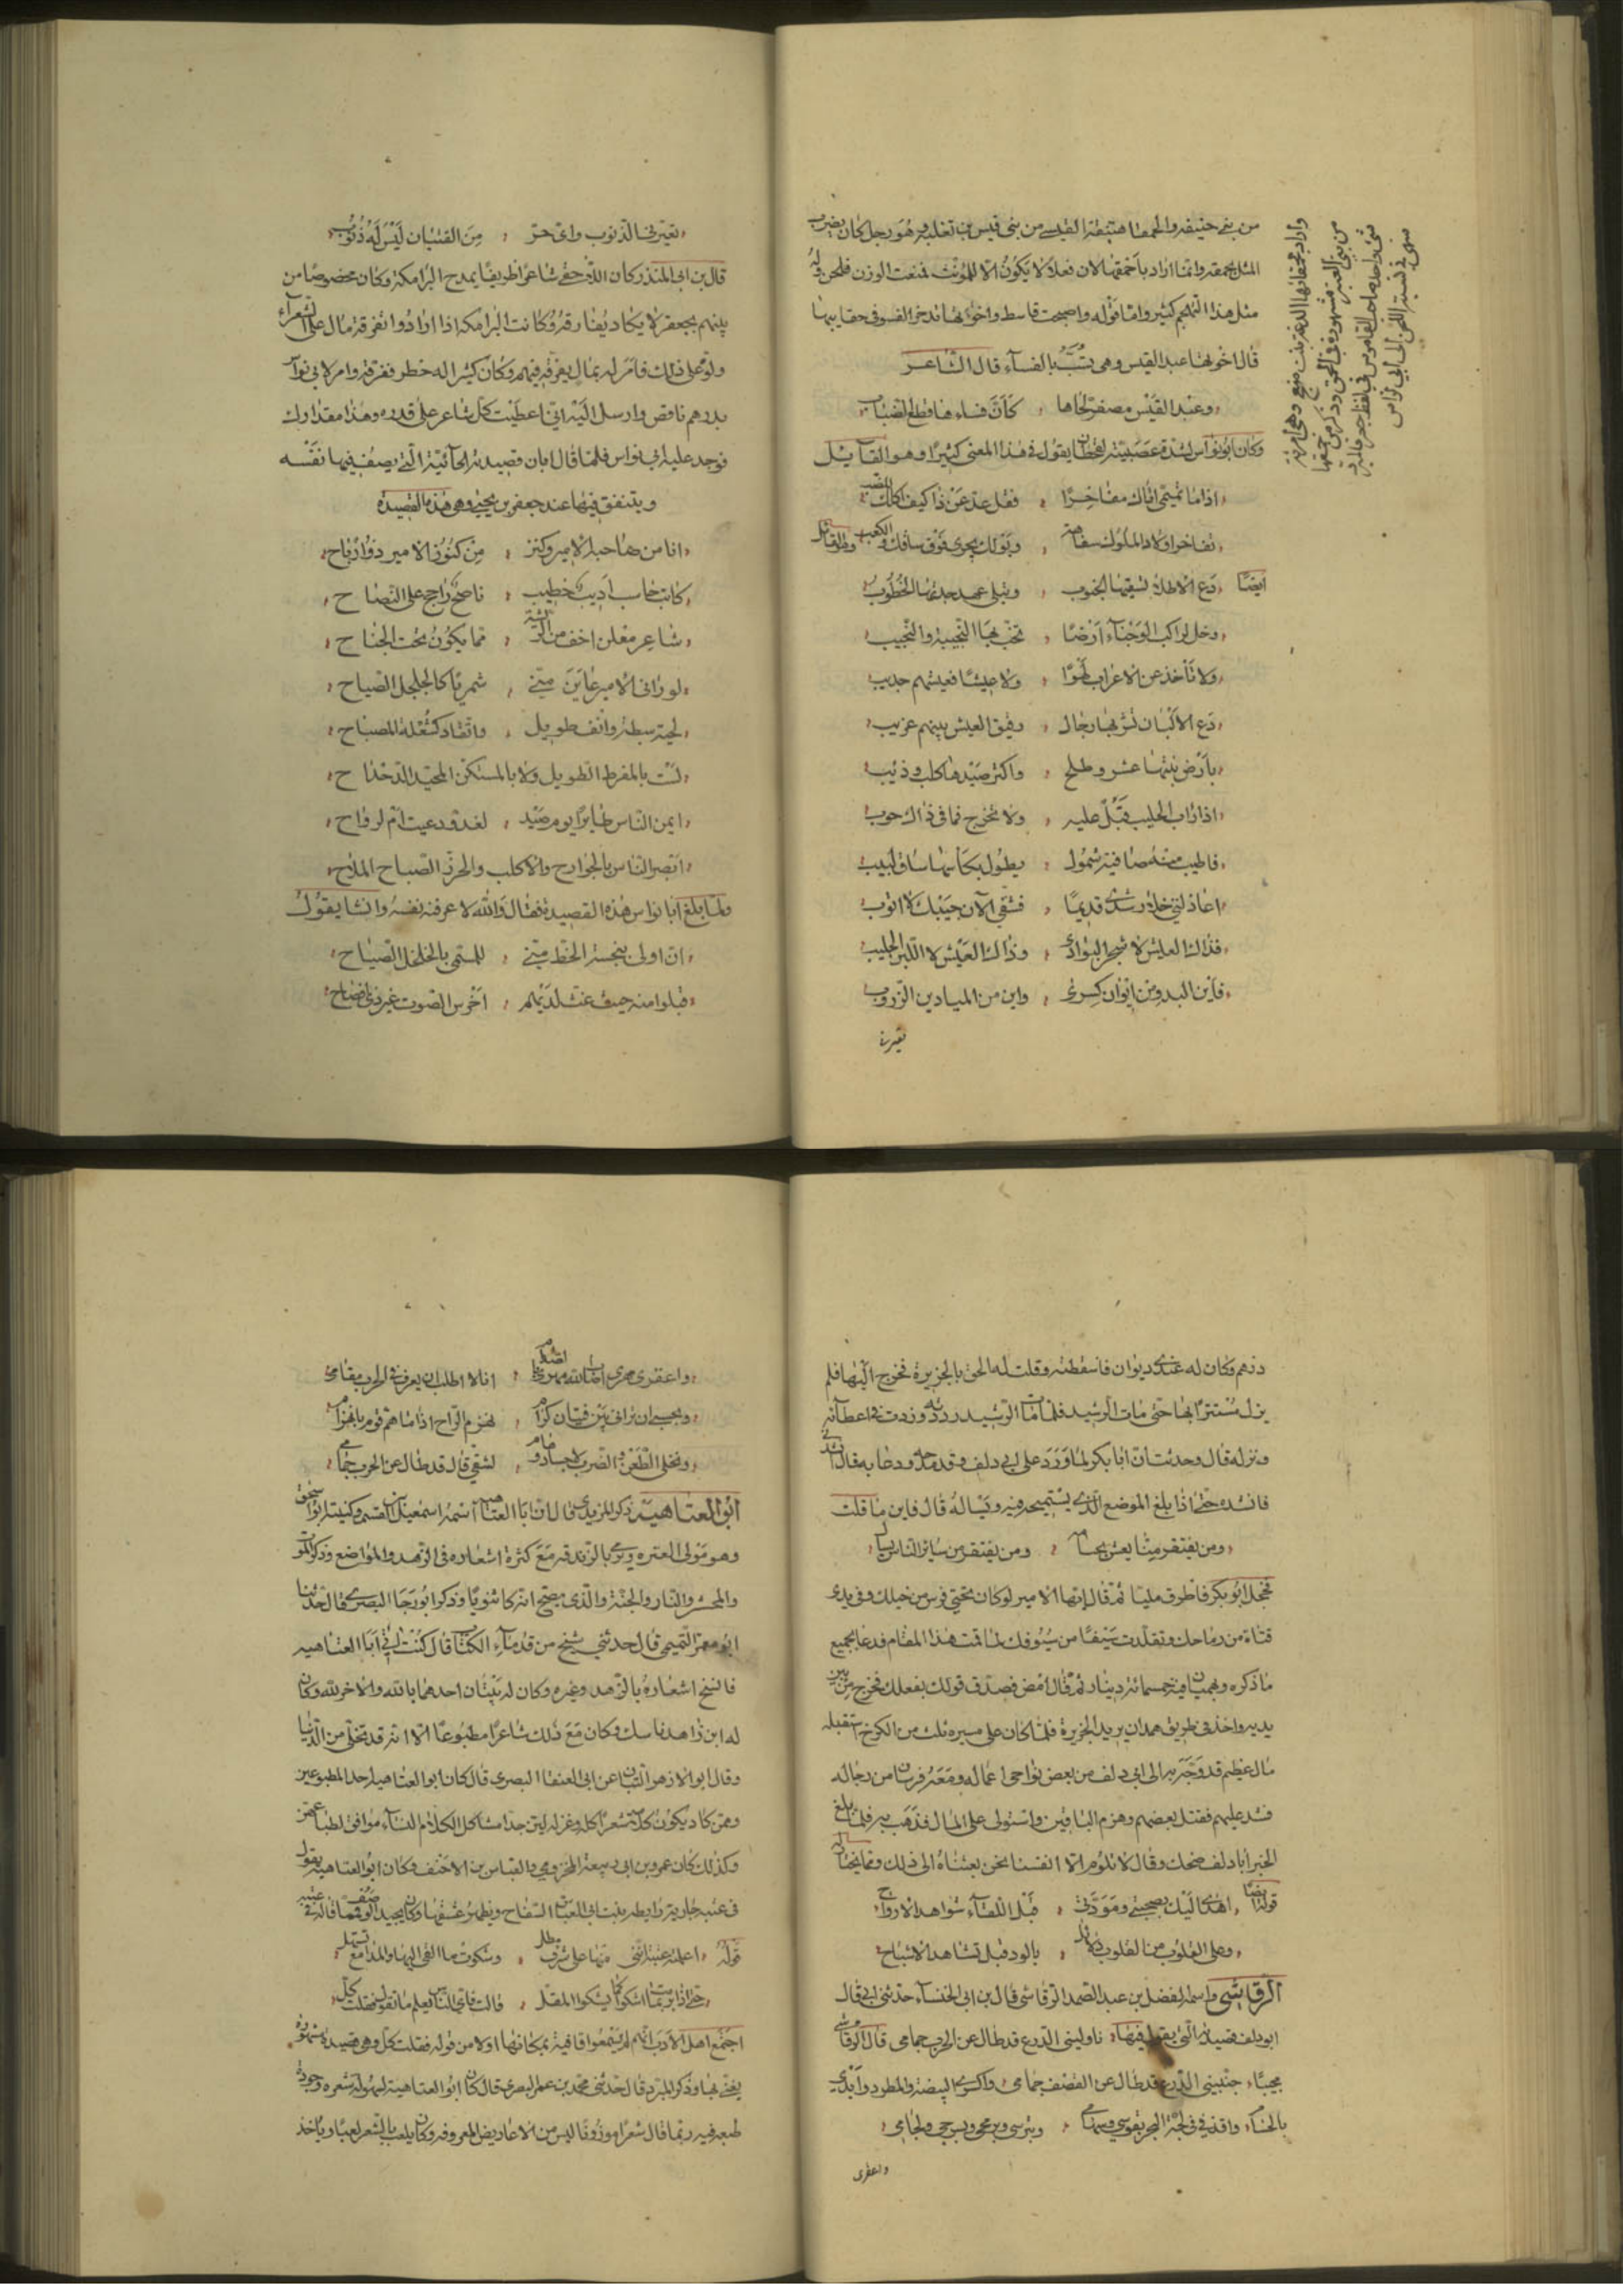 من بني حنيفه والحمقا هبنقة القيسي من بني قيس بن ثعلبه وهو رجل كان يضرب
المثل بحمقه وانما اراد باحمقها لان فعلا لا يكون الا للمؤنث فمنعت الوزن فلحن وله
مثل هذا التهكم كثير واما قوله واصبحت قاسط واخوتها تدخر الفسو في حقايبها
قال اخوتها عبد القيس وهي تسب بالفساء قال الشاعر
وعبد القيس مصفر لحاها كأن فساءها قطع الضباب
وكان ابو نواس لشدة عصبيته لقحطان يقول في هذا المعنى كثيرا وهو القايل
اذا ما تميمي اتاك مفاخرا فقل عد عن ذا كيف اكلك للضب
تفاخر اولاد الملوك سفاهة وبولك يجري فوق ساقك والكعب وله القائل
ايضا دع الاطلال تسقيها الجنوب وتبلي عهد جدتها الخطوب
وخل لراكب الوجناء ارضا تخب بها النجيبة والنجيب
ولا تأخذ عن الاعراب لهوا ولا عيشا فعيشهم جديب
دع الالبان تشربها رجال رقيق العيش بينهم غريب
بأرض نبتها عشر وطلح واكثر صيدها كلب وذئب
اذا راب الحليب فبل عليه ولا تحرج فما في ذاك حوب
فاطيب منه صافية شمول يطوف بكأسها ساق لبيب
اعاذلتي خلا رشدي قديما فشقي الآن جيبك لا اتوب
فذاك العيش لا شجر البوادي وذاك العيش لا اللبن الحليب
فأين البدو من ايوان كسرى واين من الميادين الزروب
تعيرني
واراد بحمقائها الدغة بنت منبج وهي امرأة
من بني العنبر مشهوره في الحمق وذكر من حمقها
شئ واحد صاحب القاموس في لفظ جعر فليرد
في نسبته اللحن الى ابي نواس
تعيرني الذنوب واي حر من الفتيان ليس له ذنوب
قال بن ابي المنذر وكان اللاحقي شاعرا ظريفا يمدح البرامكة وكان مخصوصا من
بينهم بجعفر لا يكاد يفارقه وكانت البرامكه اذا ارادوا تفرقة مال على الشعراء
ولوه على ذلك فامر له بمال يفرقه فيهم وكان كثيرا له خطر ففرقه وامر لابي نواس
بدرهم ناقص وارسل اليه اني اعطيت كل شاعر على قدره وهذا مقدارك
فوجد عليه ابي نواس فلما قال ابان قصيدته الحائية التي يصف فيها نفسه
ويتنفق فيها عند جعفر بن يحيى وهي هذه القصيدة
انا من حاجة الامير وكنز من كنوز الامير ذو ارباح
كاتب حاسب اديب خطيب ناصح راجح على النصاح
شاعر مفلق اخف من الريشة مما يكون تحت الجناح
لو راني الامير عاين مني شمريا كالجلجل الصياح
لحية سبطة وانف طويل واتقاد كشعلة المصباح
لست بالمفرط الطويل ولا بالمستكن المجحد الدحداح
ايمن الناس طايرا يوم صيد لغدو دعيت ام لرواح
ابصر الناس بالجوارح والاكلب والخرد الصباح الملاح
ولما بلغ ابا نواس هذه القصيدة فقال والله لاعرفنه نفسه وانشا يقول
ان اولى بخسة الحظ مني للمسمى بالجلجل الصياح
قبلوا منه حيث عنث لديهم اخرس الصوت غير ذي افصاح
درهم وكان له عندي ديوان فاسقطته وقلت له الحق بالجزيرة فخرج اليها فلم
يزل مستترا بها حتى مات الرشيد فلما مات الرشيد رددته وزدت في اعطائه
ونزله قال وحدثت ان ابا بكر لما ورد على ابي دلف وقد مدحه ودعا به قال انشدني
فانشده حتى اذا بلغ الموضع الذي يستميحه فيه ويساله قال فاين ما قلت
ومن يفتقر منا يعش بحسامه ومن يفتقر من سائر الناس يسأل
فخجل ابو بكر فاطرق مليا ثم قال ايها الامير لو كان تحتي فرس من خيلك وفي يدي
قناة من رماحك وتقلدت سيفا من سيوفك لما قمت هذا المقام فدعا بجميع
ما ذكره وبهميان فيه خمسمائة دينار ثم قال امض فصدق قولك بفعلك فخرج من بين
يديه واخذ في طريق همدان يريد الجزيرة فلما كان على مسيرة ثلث من الكرخ استقبله
مال عظيم قد وجه به الى ابي دلف من بعض نواحي اعماله ومعه فرسان من رجاله
فشد عليهم فقتل بعضهم وهزم الباقين واستولى على المال فذهب به فلما بلغ
الخبر ابا دلف ضحك وقال لا نلوم الا انفسنا نحن بعثناه الى ذلك ومما يختار له
قوله ايضا اهدى اليك نصيحتي ومودتي قبل اللقاء شواهد الارواح
وعلى القلوب من القلوب دلائل بالود قبل تشاهد الاشباح
الرقاشي واسمه الفضل بن عبد الصمد الرقاشي قال بن ابي الخنساء حدثني ابي قال
ابو دلف قصيدته التي يقول فيها ناوليني الدرع قد طال عن الحرب جمامي قال الرقاشي
مجيبا جنبيني الدرع قد طال عن القصف جمامي واكسري البيضة والمطرد وابدي
بالحسام واقذفي في لجة البحر بقوسي وسهامي وبترسي وبرمحي وبسرجي ولجامي
واعقري
واعقري مهري اصاب الله مهري بالصدام انا لا اطلب ان يعرف في الحرب مقامي
وبحسبي ان تراني بين فتيان كرام نهزم الراح اذا ما هم قوم بانهزام
ونخلي الطعن والضرب لاجساد وهام لشقي قال قد طال عن الحرب جمامي
ابو العتاهية ذكر المزيدي قال ان ابا العتاهيه اسمه اسمعيل بن القسم وكنيته ابو اسحق
وهو مولى لعنزه ويرمى بالزندقه مع كثرة اشعاره في الزهد والمواضع وذكر الموت
والمحشر والنار والجنة والذي يصح انه كان ثنويا وذكر ابو رجا البصري قال حدثنا
ابو معمر التميمي قال حدثني شيخ من قدماء الكتاب قال كنت اتي ابا العتاهيه
فانسخ اشعاره بالزهد وغيره وكان له بنتان احدهما بالله والاخر لله وكان
له ابن زاهد ناسك وكان مع ذلك شاعرا مطبوعا الا انه قد تخلى من الدنيا
وقال ابو الازهر التبان عن ابي العنقا البصري قال كان ابو العتاهيه احد المطبوعين
وممن كاد يكون كلامه شعرا كله وغزله لين جدا مشاكل لكلام النساء موافق لطباعهن
وكذلك كان عمرو بن ابي ربيعة المخزومي والعباس بن الاحنف وكان ابو العتاهيه يقول
في عتبه جارية رايطه بنت ابي العباس السفاح ويظهر عشقها وكان يجيد الوصف فمما قاله في عتبه
قوله اعلمت عتبة انني منها على شرف مطل وشكوت ما القى اليها والمدامع تستهل
حتى اذا برمت بما اشكو كما يشكو المقل قالت فاي الناس يعلم ما تقول فقلت كل
اجتمع اهل الادب انهم لم يسمعوا قافية بمكانها اولا من قوله فقلت كل وهي قصيدة مشهورة
يغنى بها وذكر المبرد قال حدثني محمد بن عمر البصري قال كان ابو العتاهية لسهولة شعره وجودة
طبعه فيه ربما قال شعرا موزونا ليس من الاعاريض المعروفه وكان يلعب بالشعر لعبا وياخذ